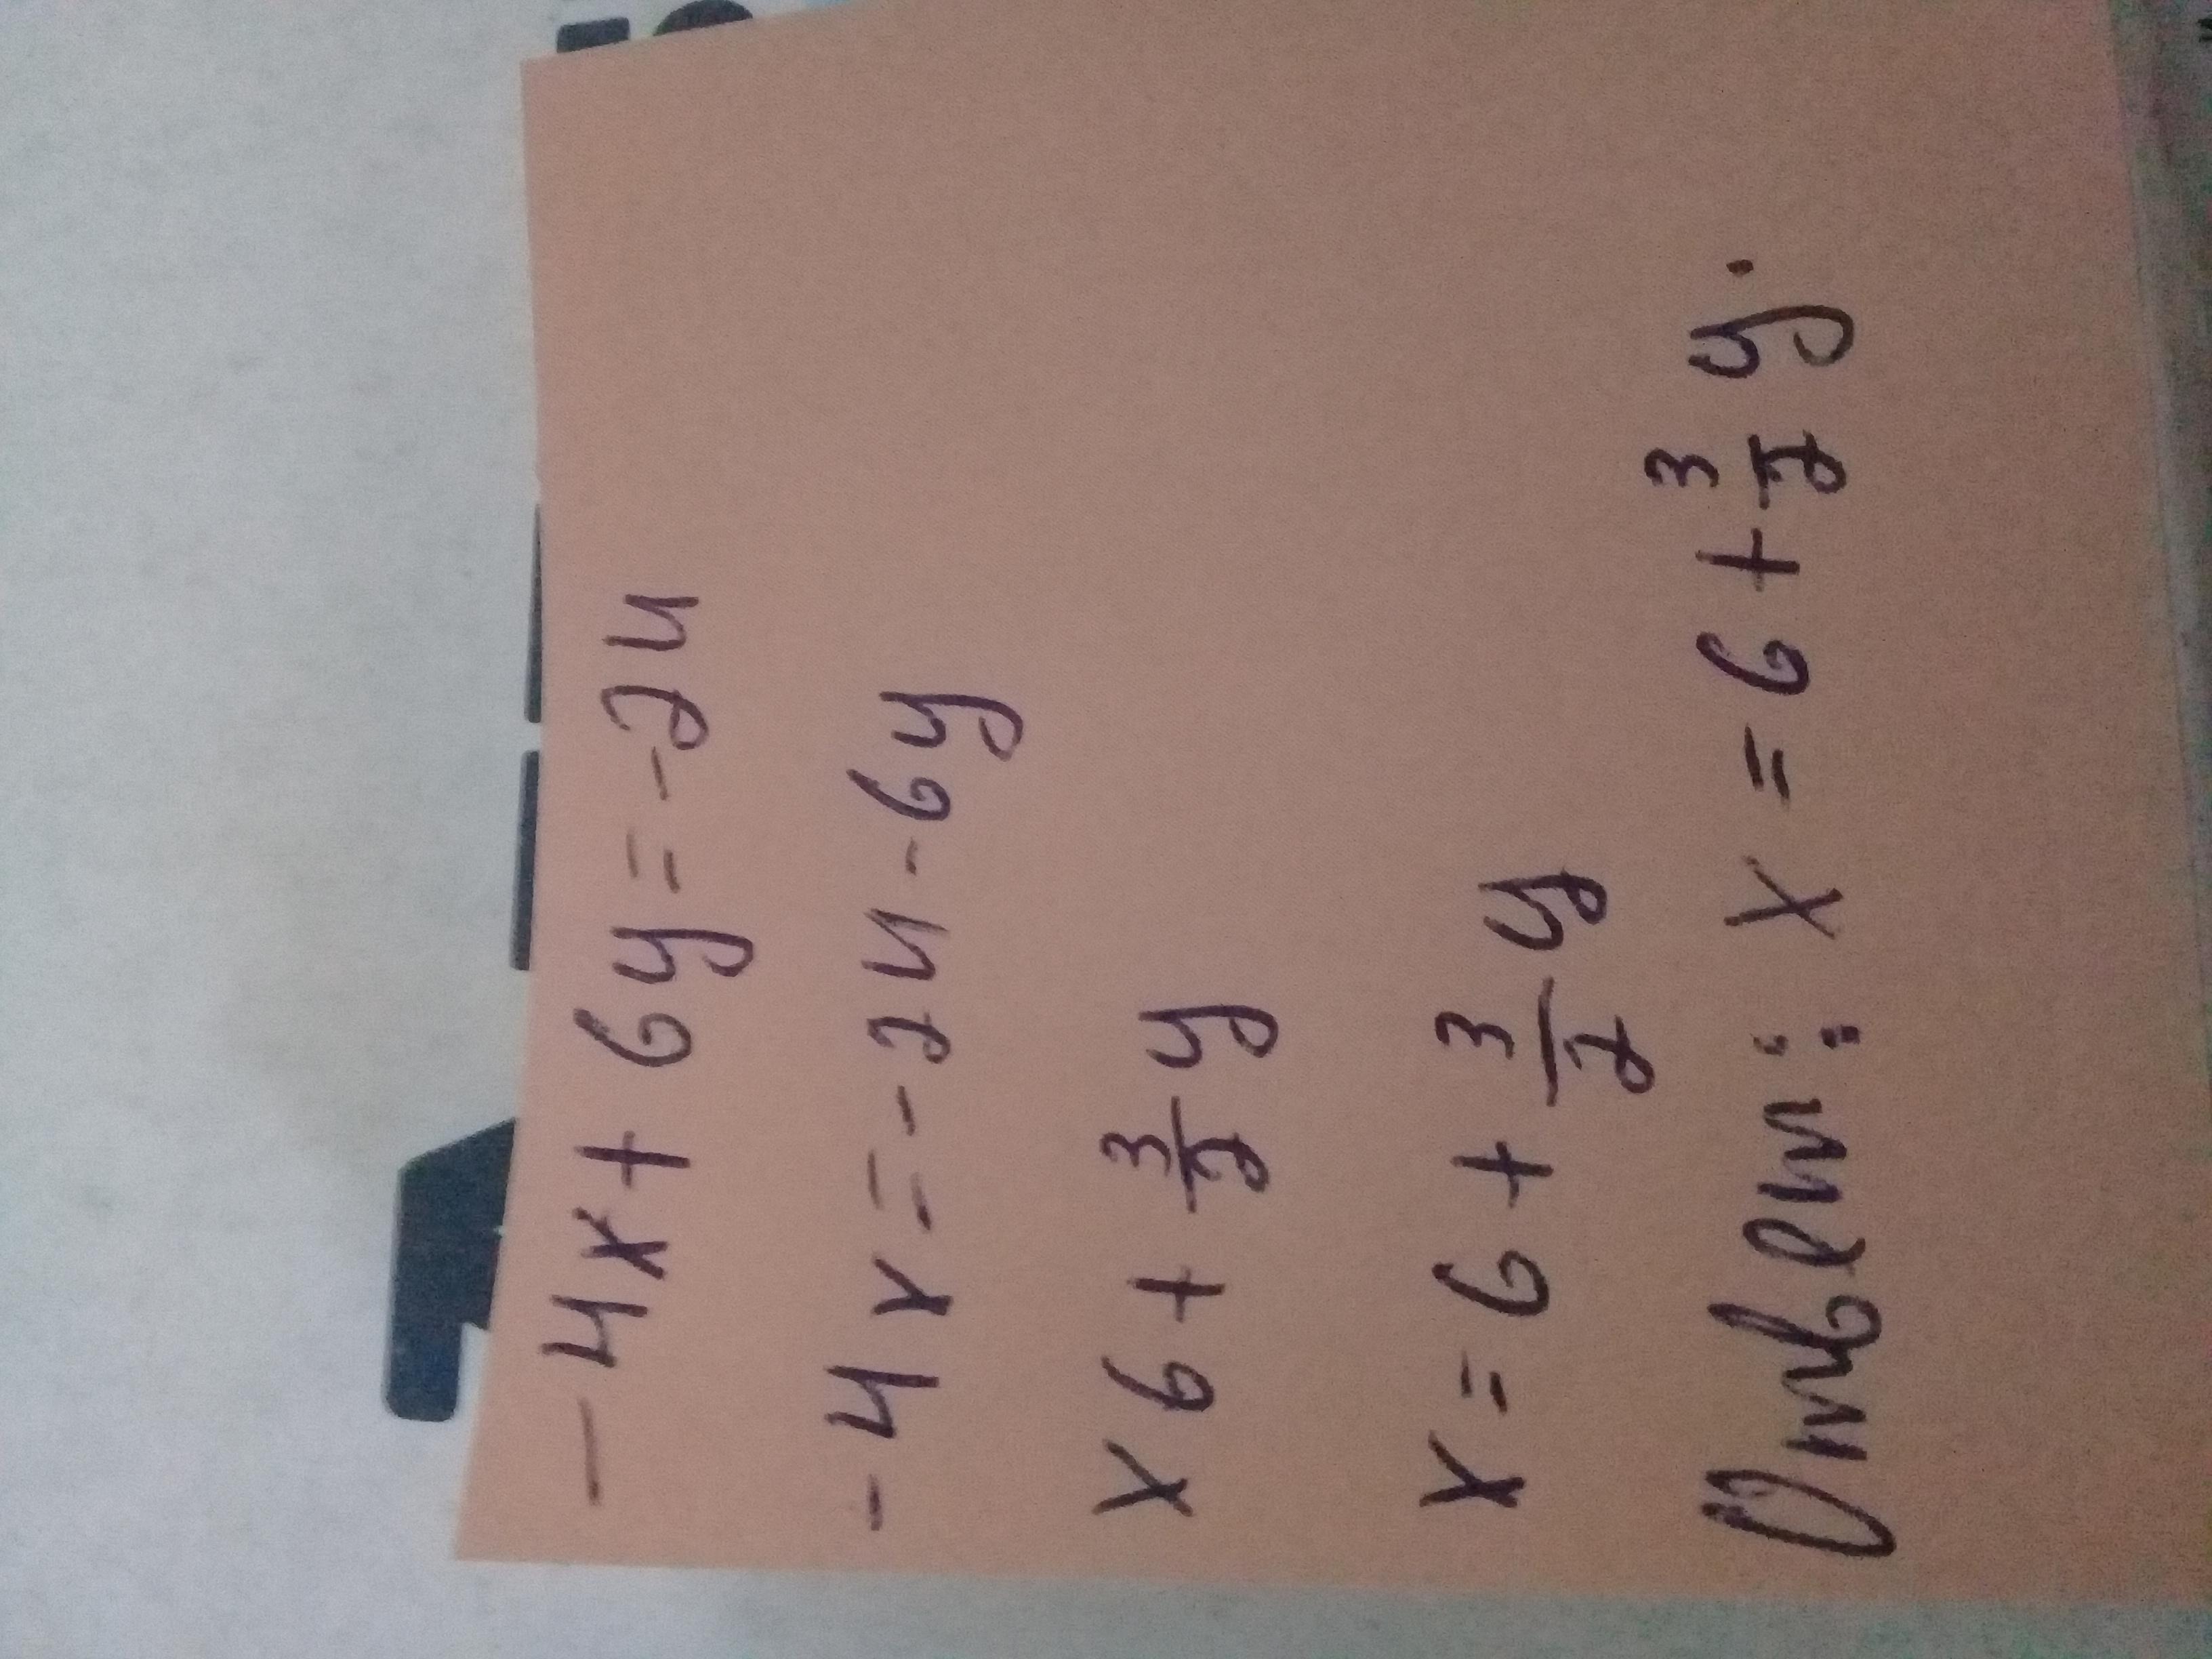 -4x+6y=-24
-4x=-24-6y
x 6+3/2y
x=6+3/2y
Ответ: x=6+3/2y.